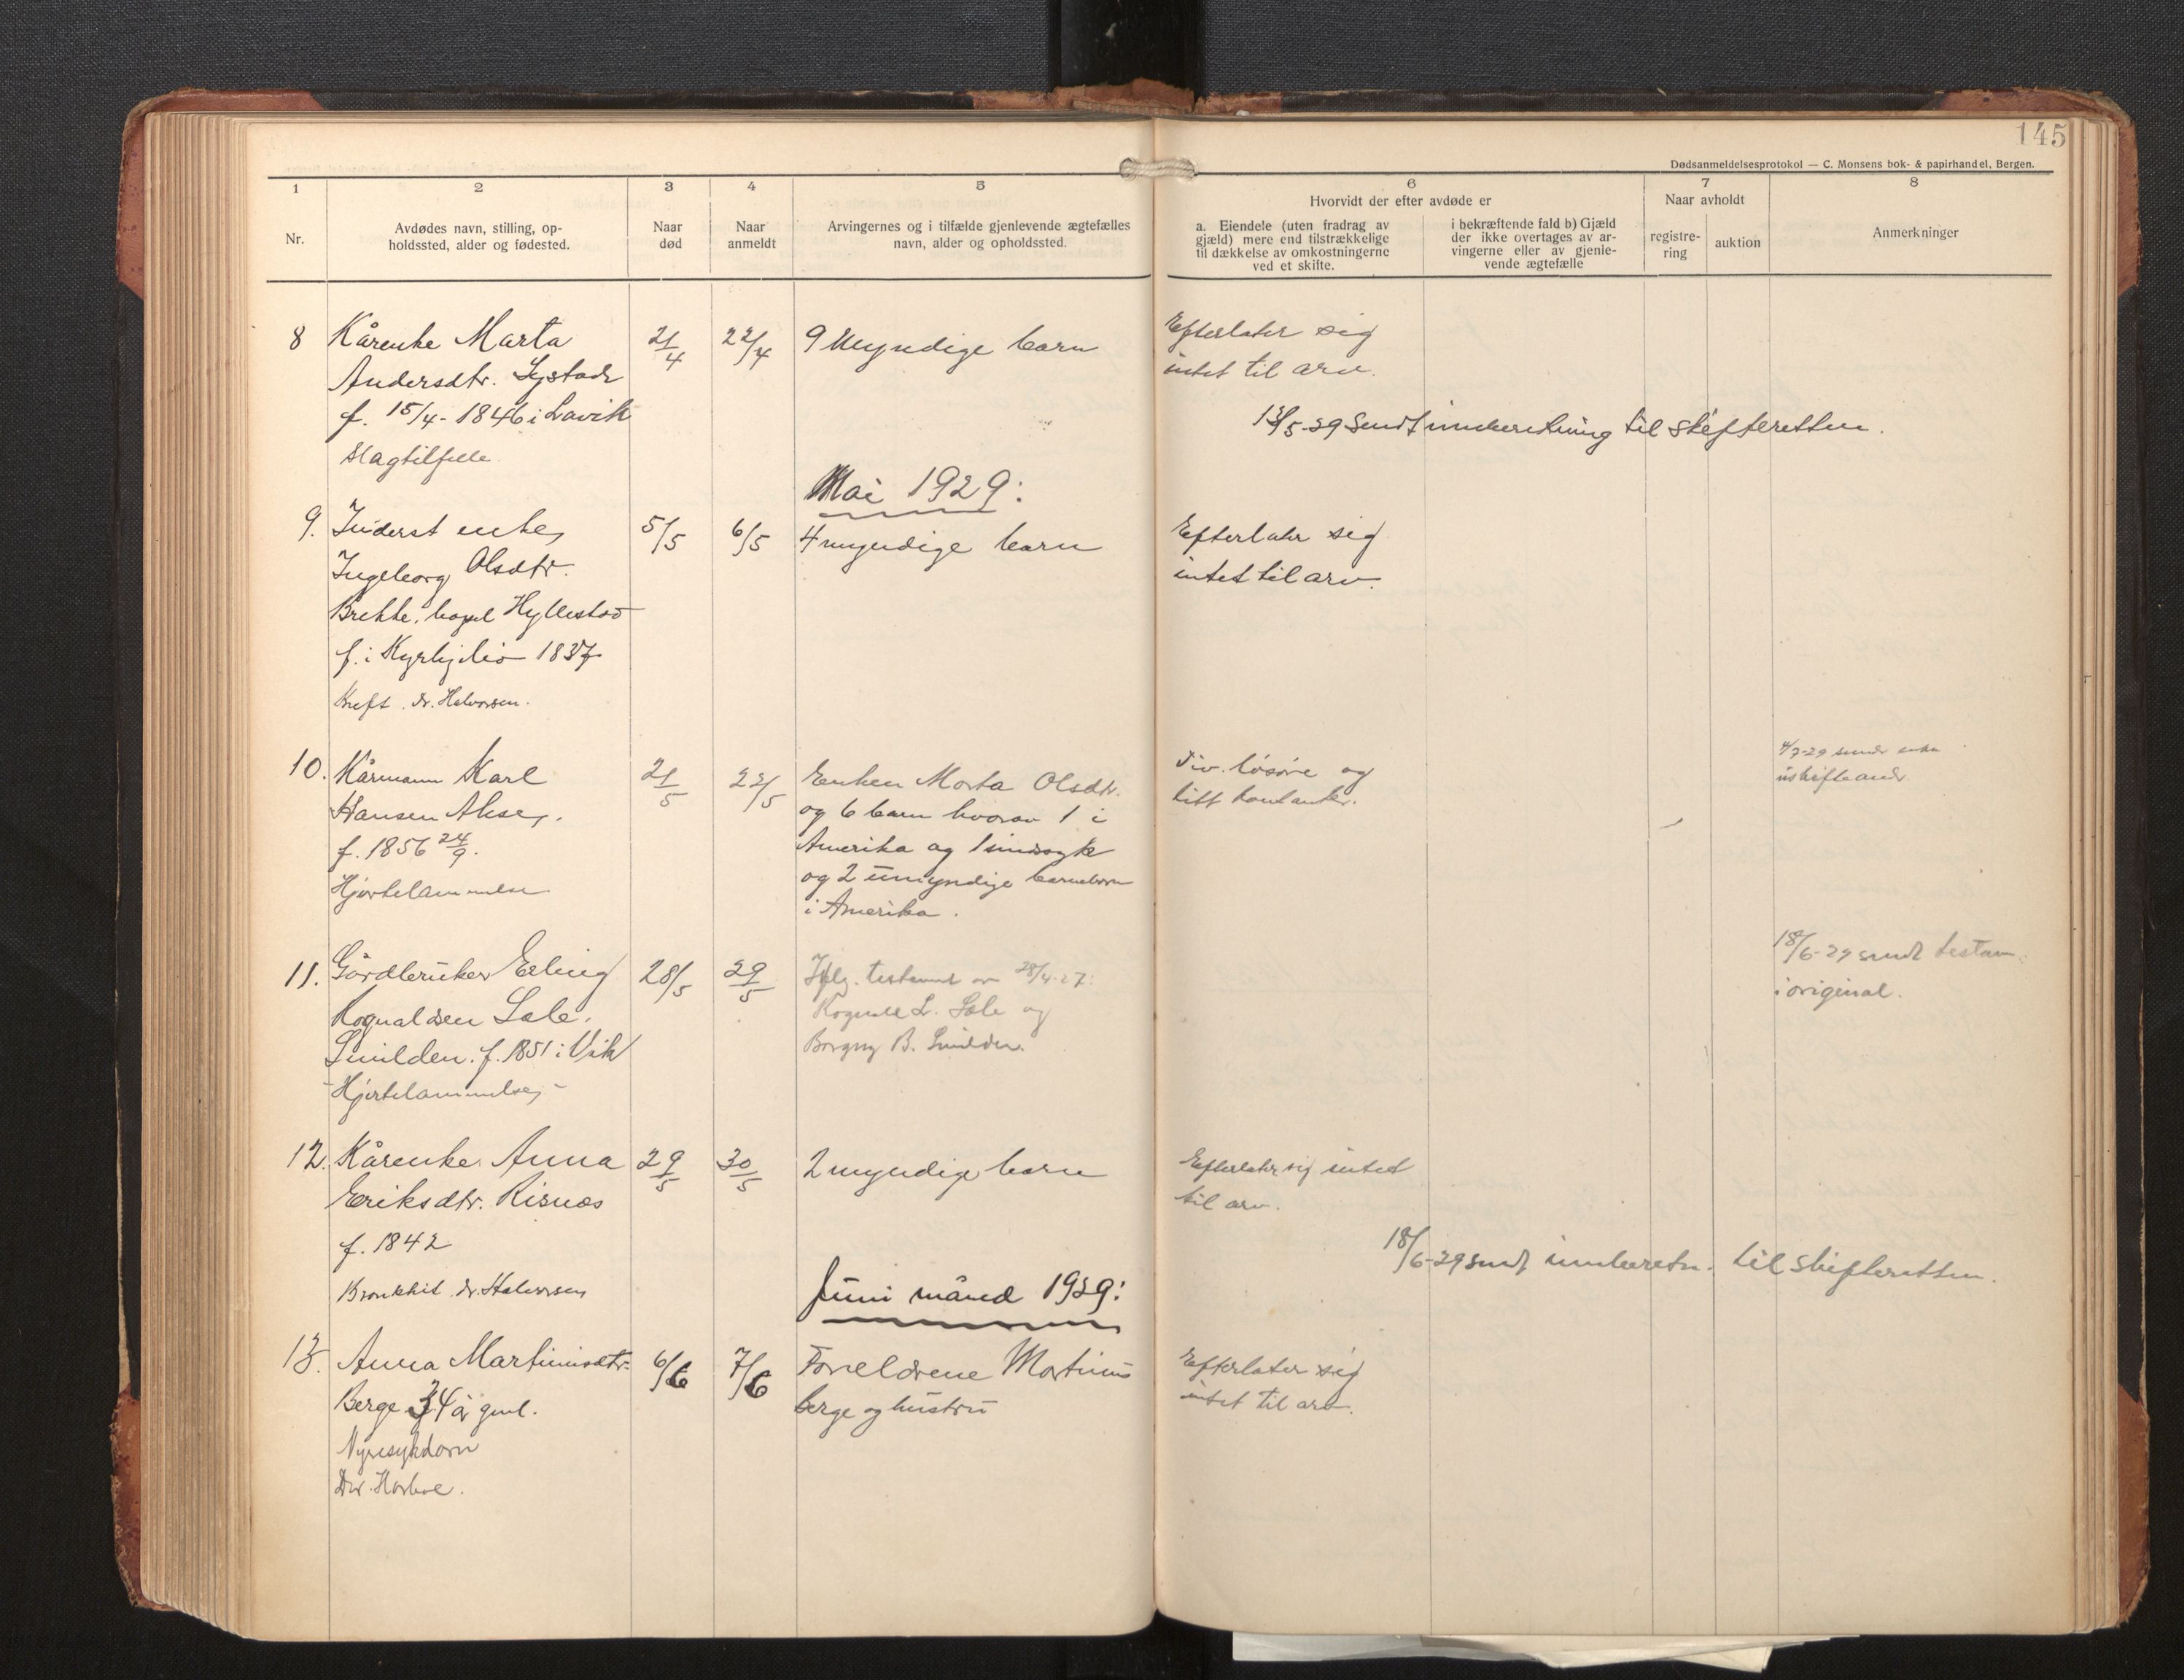 145
Dødsanmeldelsesprotokol — C. Monsens bok- & papirhandel, Bergen.
1 2 3 4 5 6 7 8
Nr.
Avdødes navn, stilling, op-
holdssted, alder og fødested.
Naar
død
Naar
anmeldt
Arvingernes og i tilfælde gjenlevende ægtefælles
navn, alder og opholdssted.
Hvorvidt der efter avdøde er
a. Eiendele (uten fradrag av
gjæld) mere end tilstrækkelige
til dækkelse av omkostningerne
ved et skifte.
i bekræftende fald b) Gjæld
der ikke overtages av ar-
vingerne eller av gjenle-
vende ægtefælle
Naar avholdt
registre-
ring
auktion
Anmerkninger
8 Kårenke Marta 21/4 22/4 9 Myndige barn Efterlater sig
Andersdtr. intet til arv.
f. 15/4- 1846 i Lavik
13/5-29 Sendt innberetning til skifteretten.
Slagtilfelle
Mai 1929:
9. Inderst enke, 5/5 6/5 4 myndige barn Efterlater sig
Ingeborg Olsdtr. intet til arv.
Brekke, Hyllestad
f. i Kyrkjebø 1837
Kreft. dr. Halvorsen.
10. Kårmann Karl 21/5 22/5 Enken Marta Olsdtr. Div. løsøre og 4/7-29 sendt enken
Hansen Akse, og 6 barn hvorav 1 i litt kontanter. uskifteandr.
f. 1856 24/9. Amerika og 1 sindssyk
Hjertelammelse og 2 umyndige barnebarn
i Amerika.
11. Gårdbruker Erling 28/5 29/5 Iflg. testament av 28/4-27: 18/6-29 sendt testam.
Rognaldsen Sæle, Rognald L. Sæle og i original.
Smilden. f. 1851 i Vik Borgny B. Smilden.
- Hjertelammelse, -
12. Kårenke Anna 29/5 30/5 2 myndige barn Efterlater sig intet
Eriksdtr. Risnæs til arv.
f. 1842
18/6-29 sendt innberetn. til skifteretten.
Bronkhit dr. Halvorsen
Juni måned 1929:
13. Anna Martinusdtr. 6/6 7/6 Foreldrene Martinus Efterlater sig
Berge 34 år gml. Berge og hustru intet til arv.
Nyresykdom